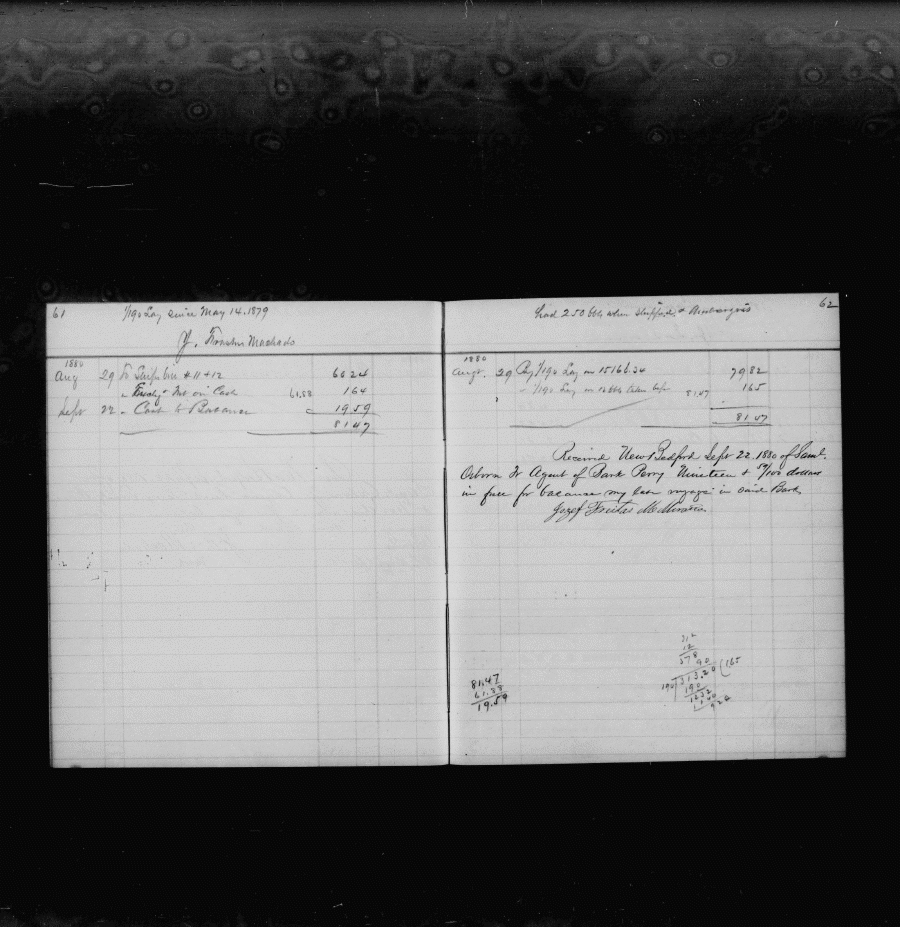 61
1/190 Lay since May 14. 1879
Machado
1880
Aug 29 To Ship bill 4 11 + 12 60 24
61.88 1 64
Sept 22 " Cash to Balance 19 59
81 47
62
had 250 bbls when shipped +
1880
Augt. 29 By 1/190 Lay on 15166.34 79 82
" 1/190 Lay on 12 bbls taken 81.47 1 65
81 47
Received New Bedford Sept 22. 1880 of Saml.
Osborn Jr Agent of Bark Perry Nineteen + 59/100 dollars
in full for balance my last voyage in said Bark
Jozef Freitas
81.47
61.88
19.59
312
12
378
90
190 313.20 165
190
1232
1140
920